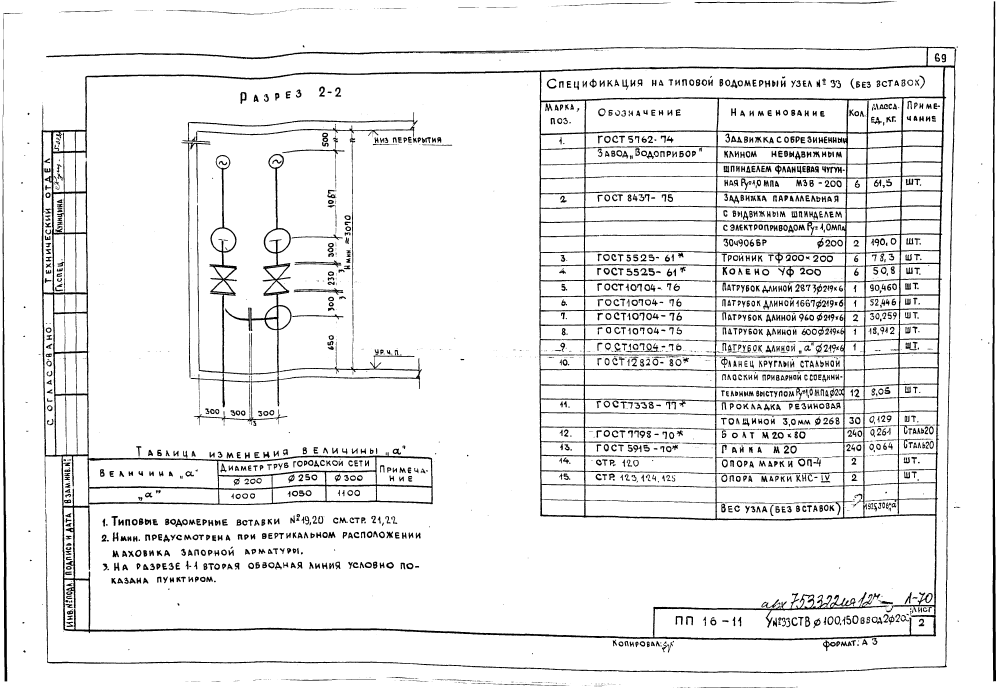 69
Разрез 2-2
500
НИЗ ПЕРЕКРЫТИЯ
1067
Н мин. ≈ 3070
300
230
3
3
300
650
УР. Ч. П.
300 300 300
3
Таблица изменения величины „а"
Величина „а" Диаметр труб городской сети Примечание
ø 200 ø 250 ø 300
„а" 1000 1050 1100
1. Типовые водомерные вставки №19,20 см.стр. 21,22
2. Нмин. предусмотрена при вертикальном расположении
маховика запорной арматуры.
3. На разрезе 1-1 вторая обводная линия условно по-
казана пунктиром.
Спецификация на типовой водомерный узел № 33 (без вставок)
Марка, поз. Обозначение Наименование Кол. Масса ед., кг. Примечание
1. ГОСТ 5762-74 Задвижка с обрезиненным
Завод „Водоприбор" клином невидвижным
шпинделем фланцевая чугун-
ная Ру=1,0 МПа МЗВ-200 6 61,5 шт.
2. ГОСТ 8437-75 Задвижка параллельная
с видвижным шпинделем
с электроприводом Ру=1,0мпа
30ч906БР ø200 2 190,0 шт.
3. ГОСТ 5525-61* Тройник ТФ 200×200 6 78,3 шт.
4. ГОСТ 5525-61* Колено УФ 200 6 50,8 шт.
5. ГОСТ 10704-76 Патрубок длиной 2873ø219×6 1 90,460 шт.
6. ГОСТ 10704-76 Патрубок длиной 1667ø219×6 1 52,446 шт.
7. ГОСТ 10704-76 Патрубок длиной 960ø219×6 2 30,259 шт.
8. ГОСТ 10704-75 Патрубок длиной 600ø219×6 1 18,912 шт.
9. ГОСТ 10704-76 Патрубок длиной „а" ø219×6 1 шт.
10. ГОСТ 12820-80* Фланец круглый стальной
плоский приварной с соедини-
тельным выступом Ру=1,0 мпа ø200 12 8,05 шт.
11. ГОСТ 7338-77* Прокладка резиновая
толщиной 3,0мм ø268 30 0,129 шт.
12. ГОСТ 7798-70* Болт М20×80 240 0,261 Сталь20
13. ГОСТ 5915-70* Гайка М20 240 0,064 Сталь20
14. стр. 120 Опора марки ОП-4 2 шт.
15. стр. 123, 124, 125 Опора марки КНС-IV 2 шт.
Вес узла (без вставок)
СОГЛАСОВАНО:
ТЕХНИЧЕСКИЙ ОТДЕЛ
Гл.спец.
ВЗАМ.ИНВ.№
ПОДПИСЬ И ДАТА
ИНВ.№ПОДЛ.
Л-70
ПП 16-11
У№33СТВ ø100,150 ввод2ø200
ЛИСТ
2
КОПИРОВАЛ:
ФОРМАТ: А 3